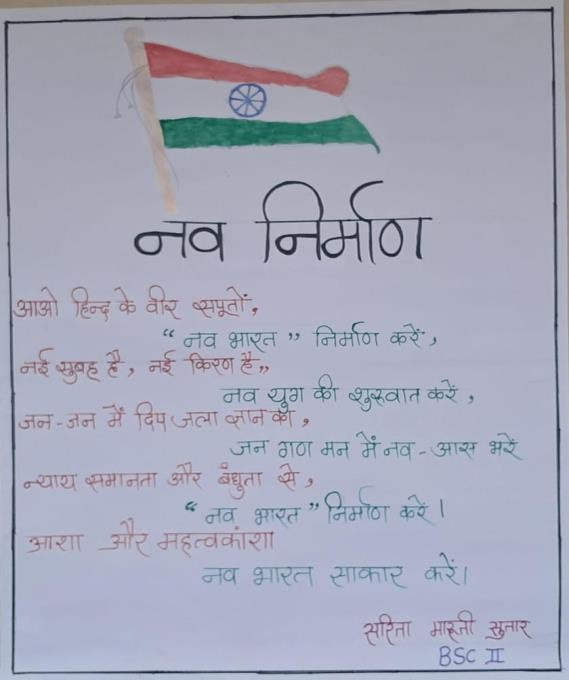 नव निर्माण
आओ हिन्द के वीर सपूतों,
“नव भारत” निर्माण करें,
नई सुबह है, नई किरण है,,
नव युग की शुरुवात करें,
जन-जन में दिप जला ज्ञान का,
जन गण मन में नव-आस भरें
न्याय समानता और बंधुता से,
“नव भारत” निर्माण करें।
आशा और महत्वकांशा
नव भारत साकार करें।
सरिता मारूती सुतार
BSC II